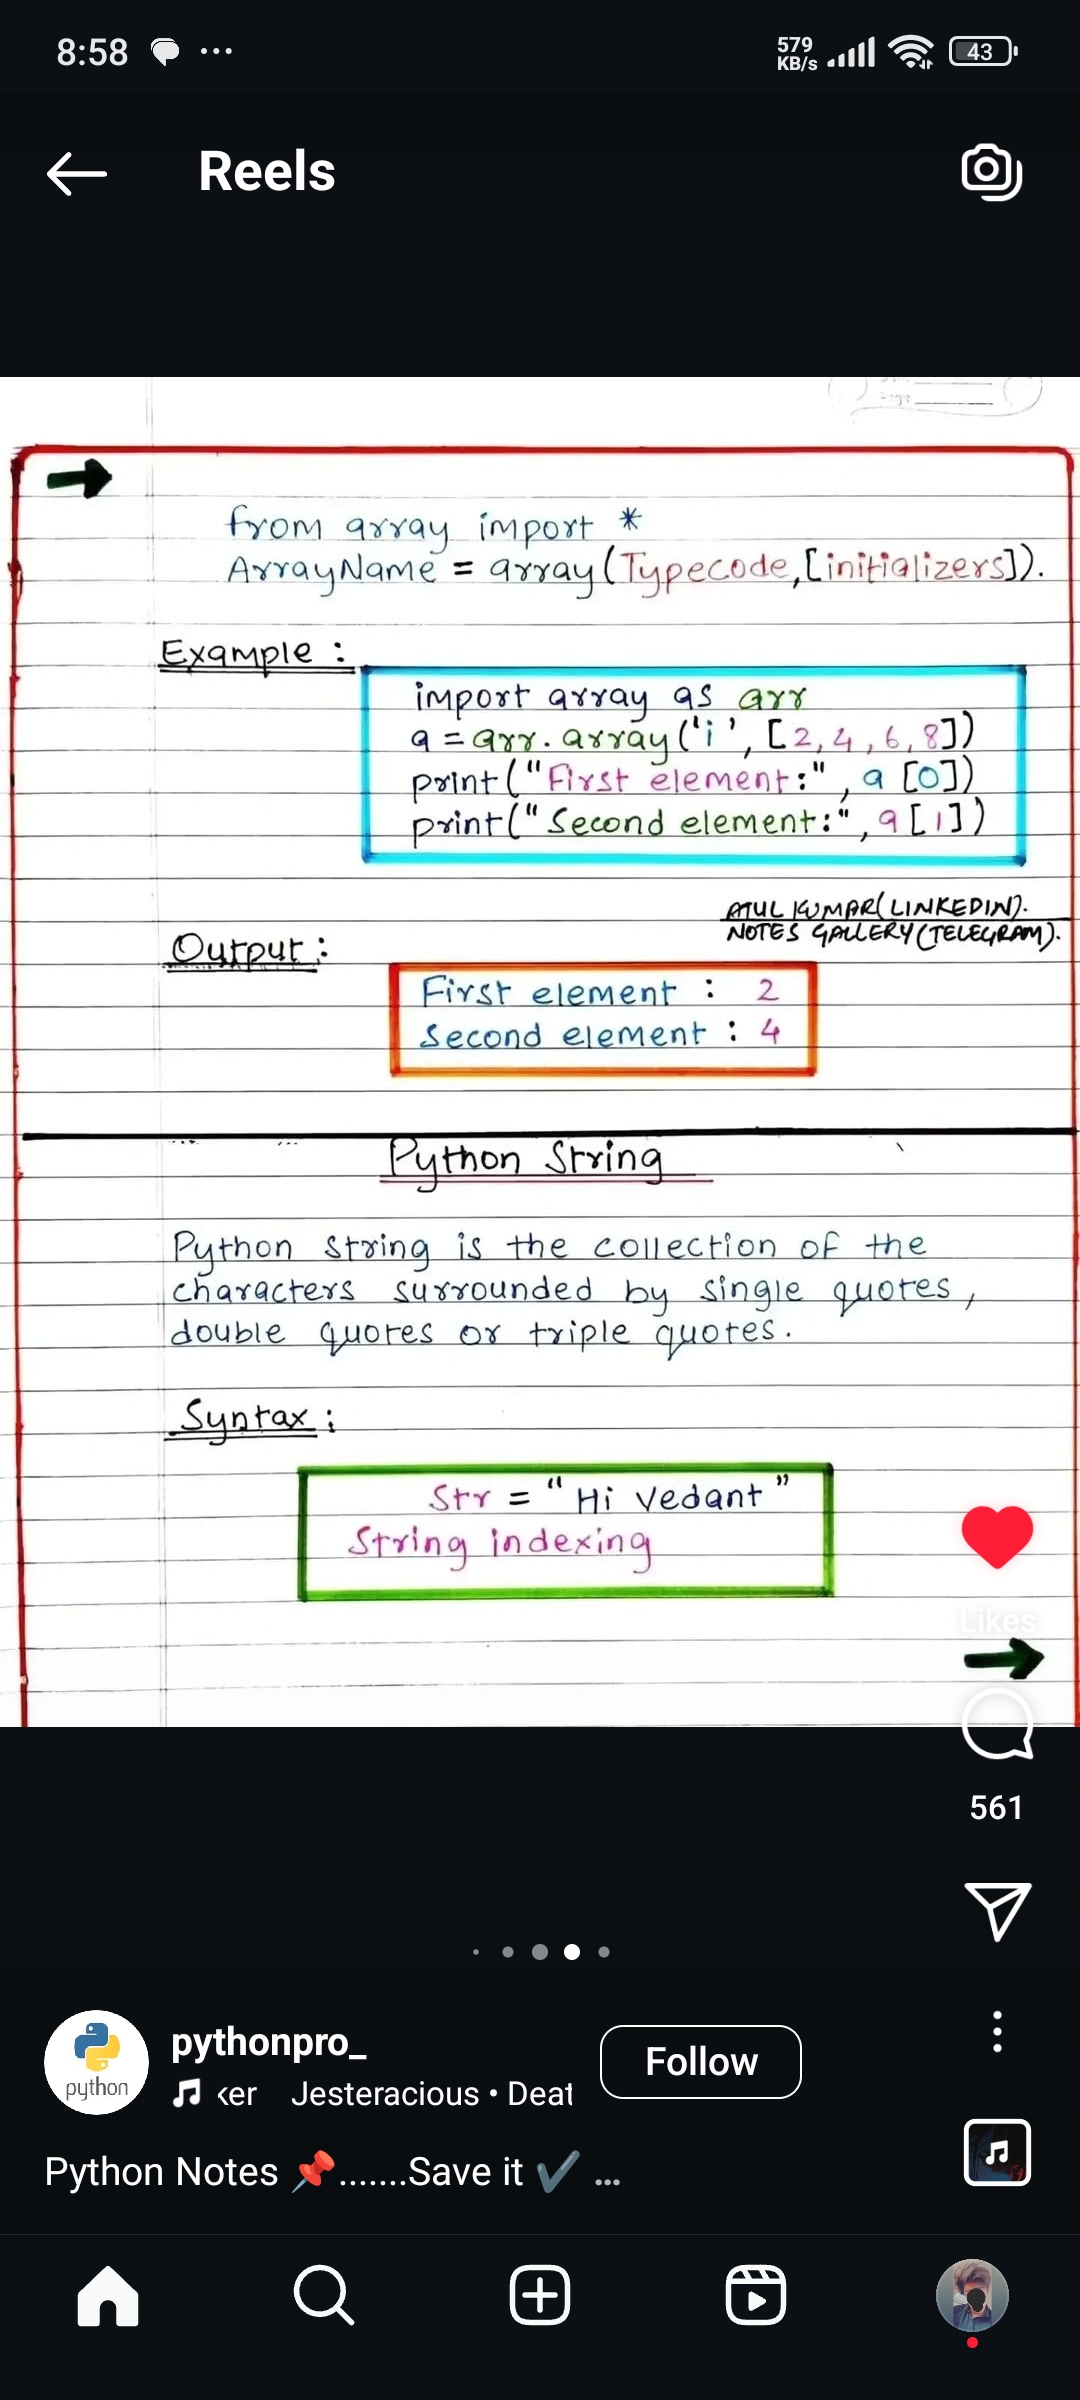 8:58
579
KB/s
43
Reels
from array import *
ArrayName = array(Typecode,[initializers]).
Example :
import array as arr
a = arr.array('i', [2,4,6,8])
print("First element:", a [0])
print("Second element:", a[1])
ATUL KUMAR(LINKEDIN).
NOTES GALLERY(TELEGRAM).
Output :
First element : 2
Second element : 4
Python String
Python string is the collection of the
characters surrounded by single quotes,
double quotes or triple quotes.
Syntax :
Str = "Hi Vedant"
String indexing
Likes
561
pythonpro_
Follow
python
ker Jesteracious • Deat
Python Notes 📌.......Save it ✔️ ...